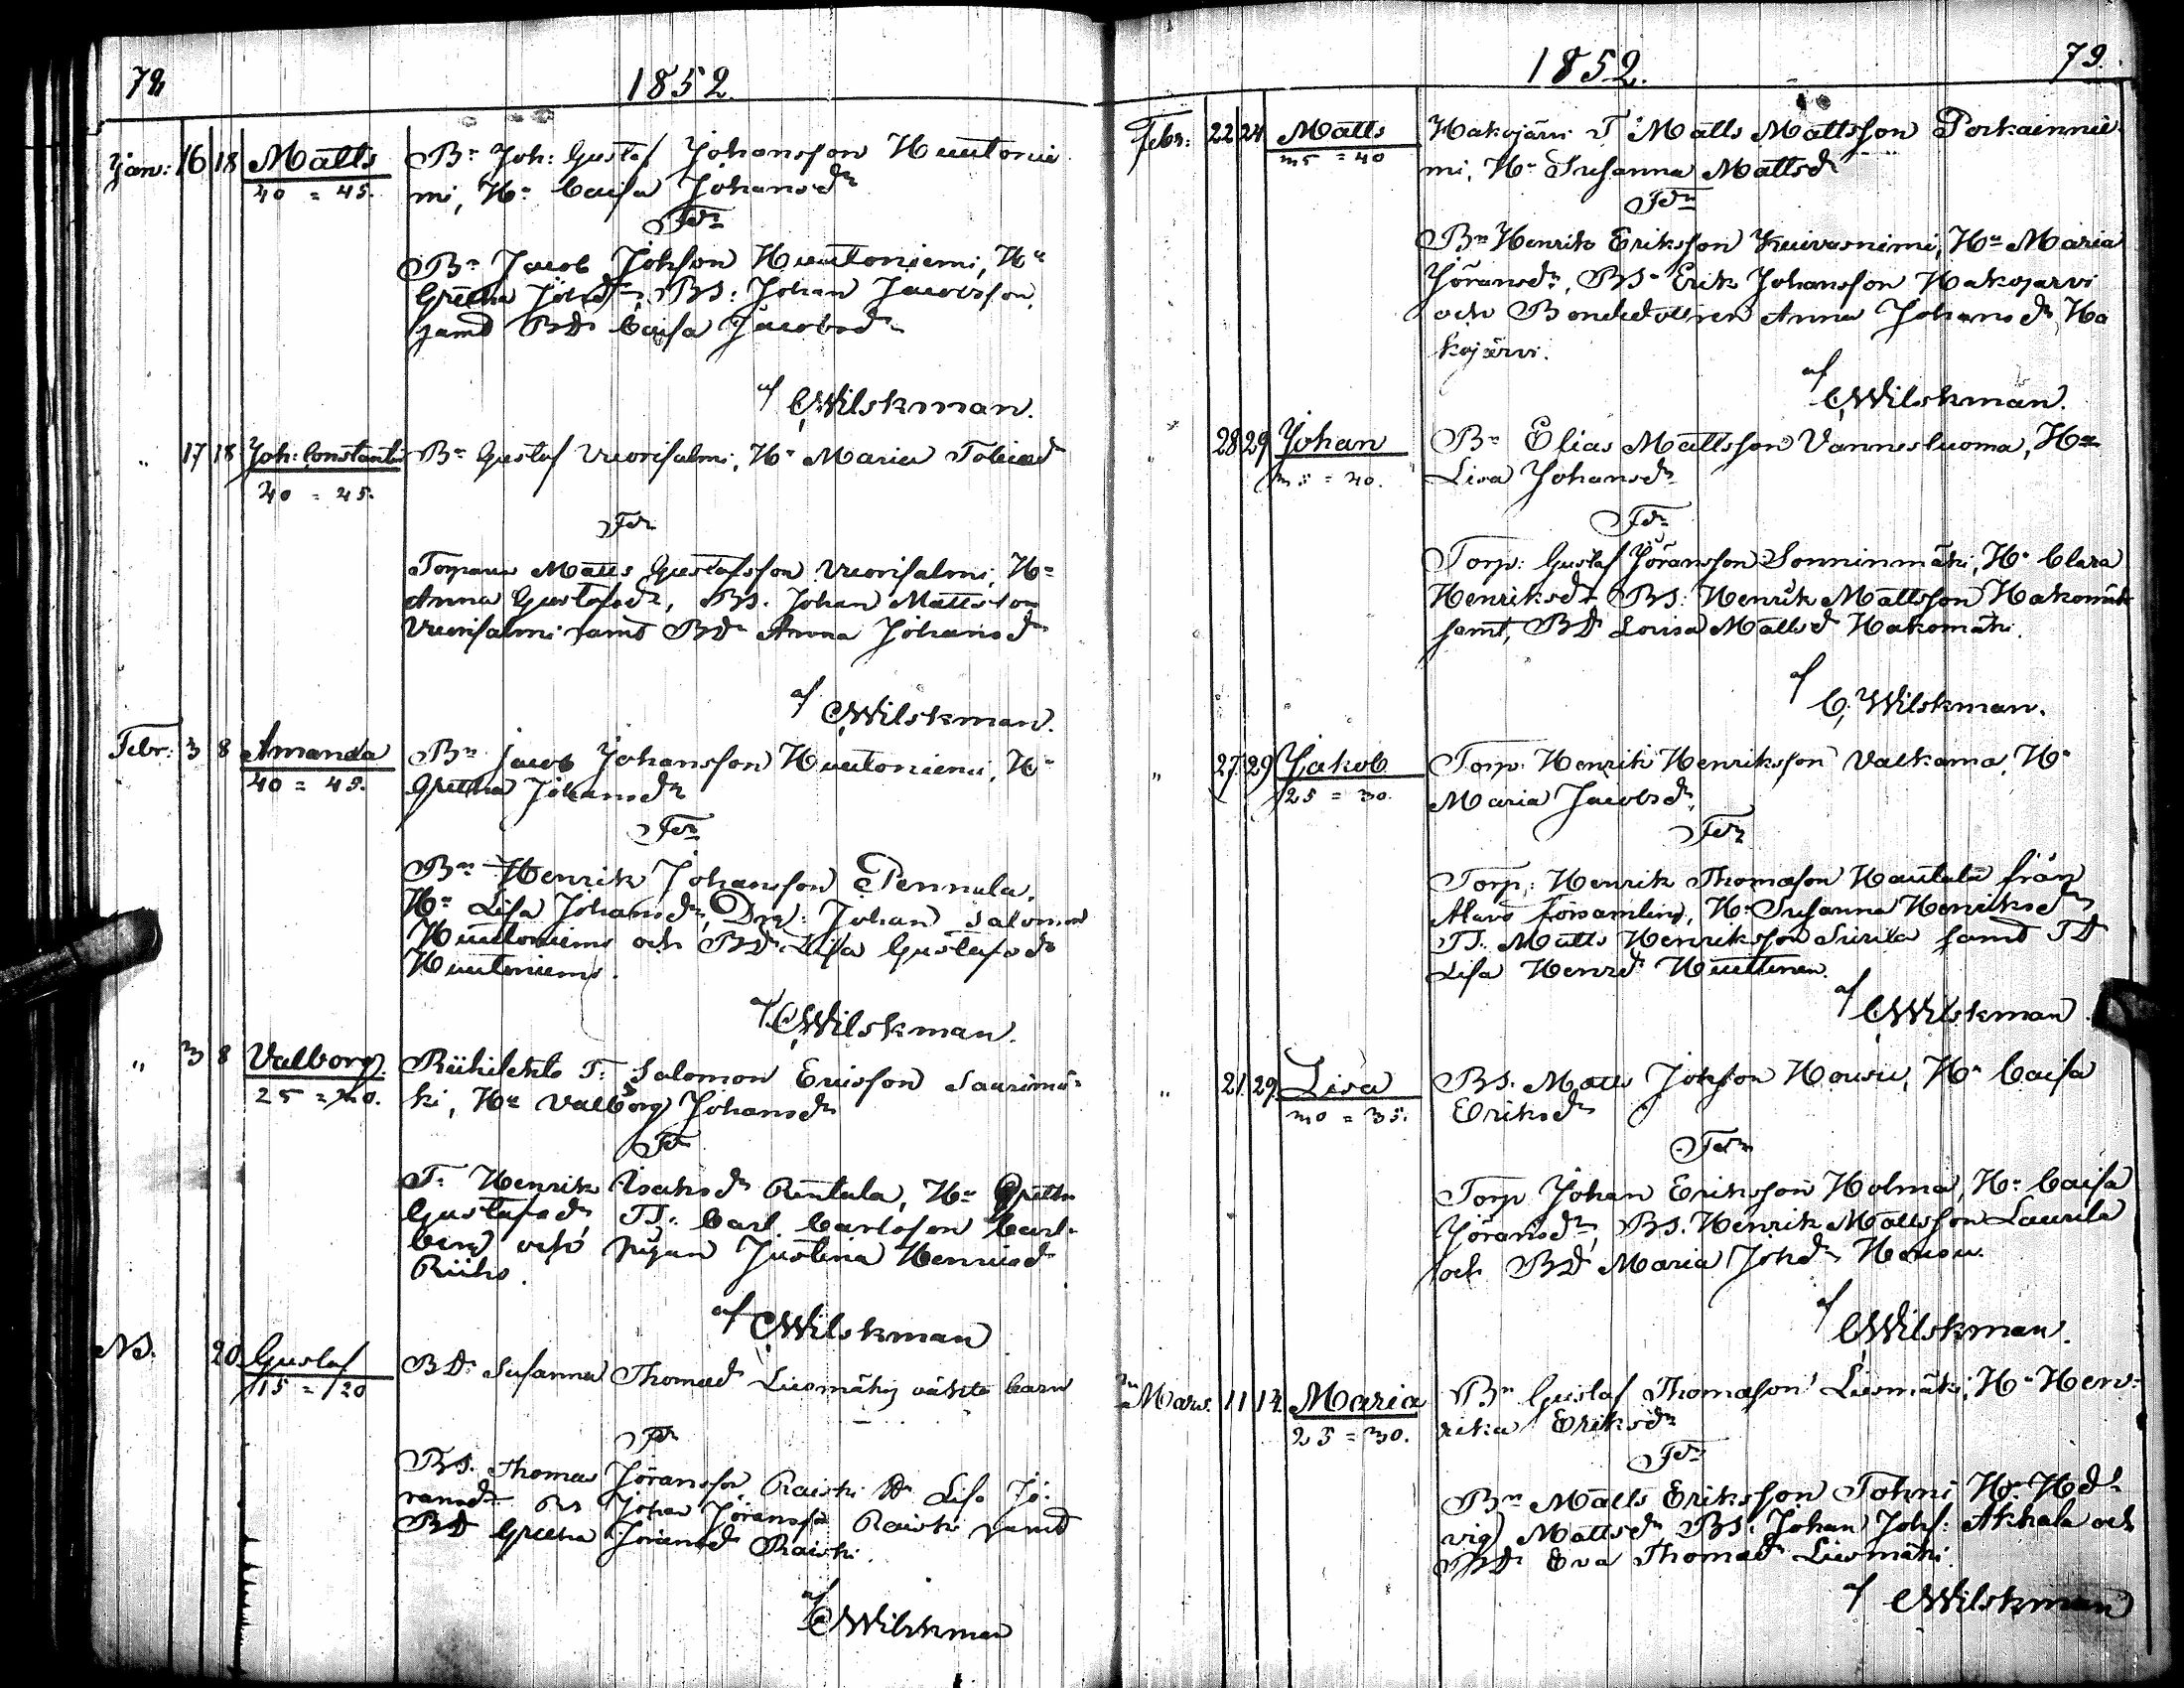 72
1852.
Jan: 16 18 Matts Bn Joh: Gustaf Johansson Huutonie
40 = 45. mi, Hu Caisa Johansdr
Fdr
Bn Jacob Johsson Huutoniemi, Hu
Gretha Johdr, BS: Johan Jacobsson
samt BDr Caisa Jacobsdr
af CWilskman.
" 17 18 Joh: Constantin Bn Gustaf Vuorisalmi, Hu Maria Tobiaedr
40 = 45.
Fdr
Torparen Matts Gustafsson Vuorisalmi, Hu
Anna Gustafsdr, BS. Johan Mattsson
Vuorisalmi samt BDr Anna Johansdr
af CWilskman.
Febr: 3 8 Amanda Bn Jacob Johansson Huutoniemi, Hu
40 = 45. Gretha Johansdr
Fdr
Bn Henrik Johansson Pennala,
Hu Lisa Johansdr, Drg: Johan Salomon
Huutoniemi och BD: Lisa Gustafsdr
Huutoniemi.
af CWilskman.
" 3 8 Valborg. T: Salomon Ericsson Saurimä-
25 = 30. ki, Hu Valborg Johansdr
Fdr
T: Henrik Isaksdr Rintala, Hu Gretha
Gustafsdr, TS: Carl Carlsson Carl-
berg och pigan Justina Henricsdr
Riiho.
af CWilskman
NB. 20 Gustaf BDr Susanna Thomaedr Liesmäki oäkta barn
15 = 20
Fdr
BS. Thomas Jöransson Raiski Hu Lisa Jö-
ransdr BS Johan Jöransson Raiski samt
BD Gretha Jöransdr Raiski.
af CWilskman
1852.
73.
Febr: 22 24 Matts Hakojärvi T: Matts Mattsson Porkainnie
35 = 40 mi, Hu Susanna Mattsdr
Fdr
Bn Henrik Eriksson Kuivasniemi, Hu Maria
Jöransdr, BS Erik Johansson Hakojärvi
och Bondedottren Anna Johansdr Ha
kojärvi.
af CWilskman.
" 28 29 Johan Bn Elias Mattsson Vannesluoma, Hu
35 = 40. Lisa Johansdr
Fdr
Torp: Gustaf Jöransson Sonninmäki, Hu Clara
Henriksdr BS: Henrik Mattsson Hakomäki
samt, BD Lovisa Mattsd Hakomäki.
af C. Wilskman.
" 27 29 Jakob Torp: Henrik Henriksson Valkama, Hu
25 = 30. Maria Jacobsdr,
Fdr
Torp: Henrik Thomasson Hautala från
Alavo församling, Hu Susanna Henriksdr
TS: Matts Henriksson Siirilä samt TD
Lisa Henrdr Huuttonen.
af CWilskman.
" 21 29 Lisa BS. Matts Johsson Housu, Hu Caisa
30 = 35. Eriksdr
Fdr
Torp Johan Eriksson Holma, Hu Caisa
Jöransdr, BS. Henrik Mattsson Laurila
och BD Maria Johdr Housu.
af CWilskman.
Mars. 11 14 Maria Bn Gustaf Thomasson Liesmäki, Hu Hen-
25 = 30. rika Eriksdr
Fdr
Bn Matts Eriksson Tohni Hu Hed-
vig Mattsdr BS: Johan Johs: Akkala och
BDr Eva Thomaedr Liesmäki.
af CWilskman